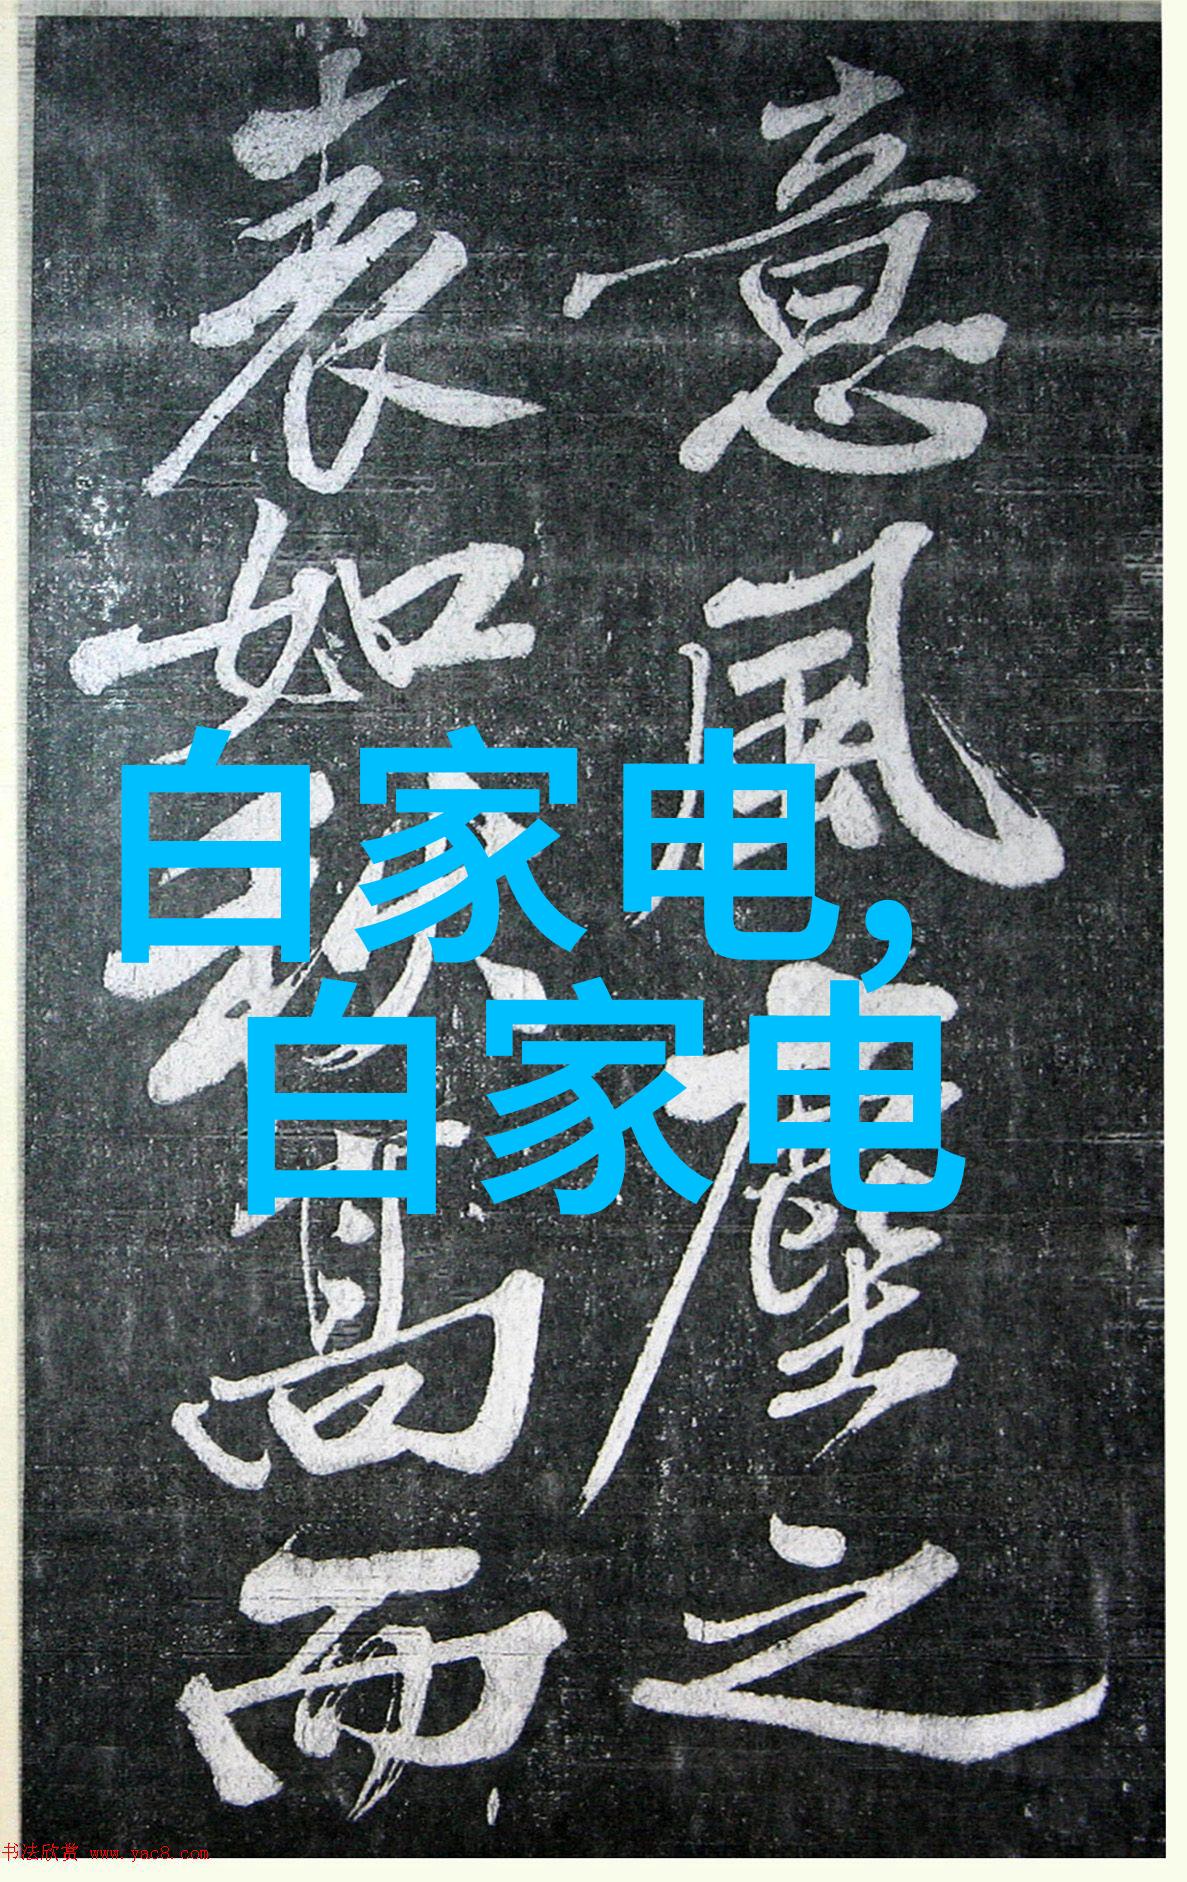 意風塵之
表如高而
白家电,
白家电
书法欣赏 www.yac8.com